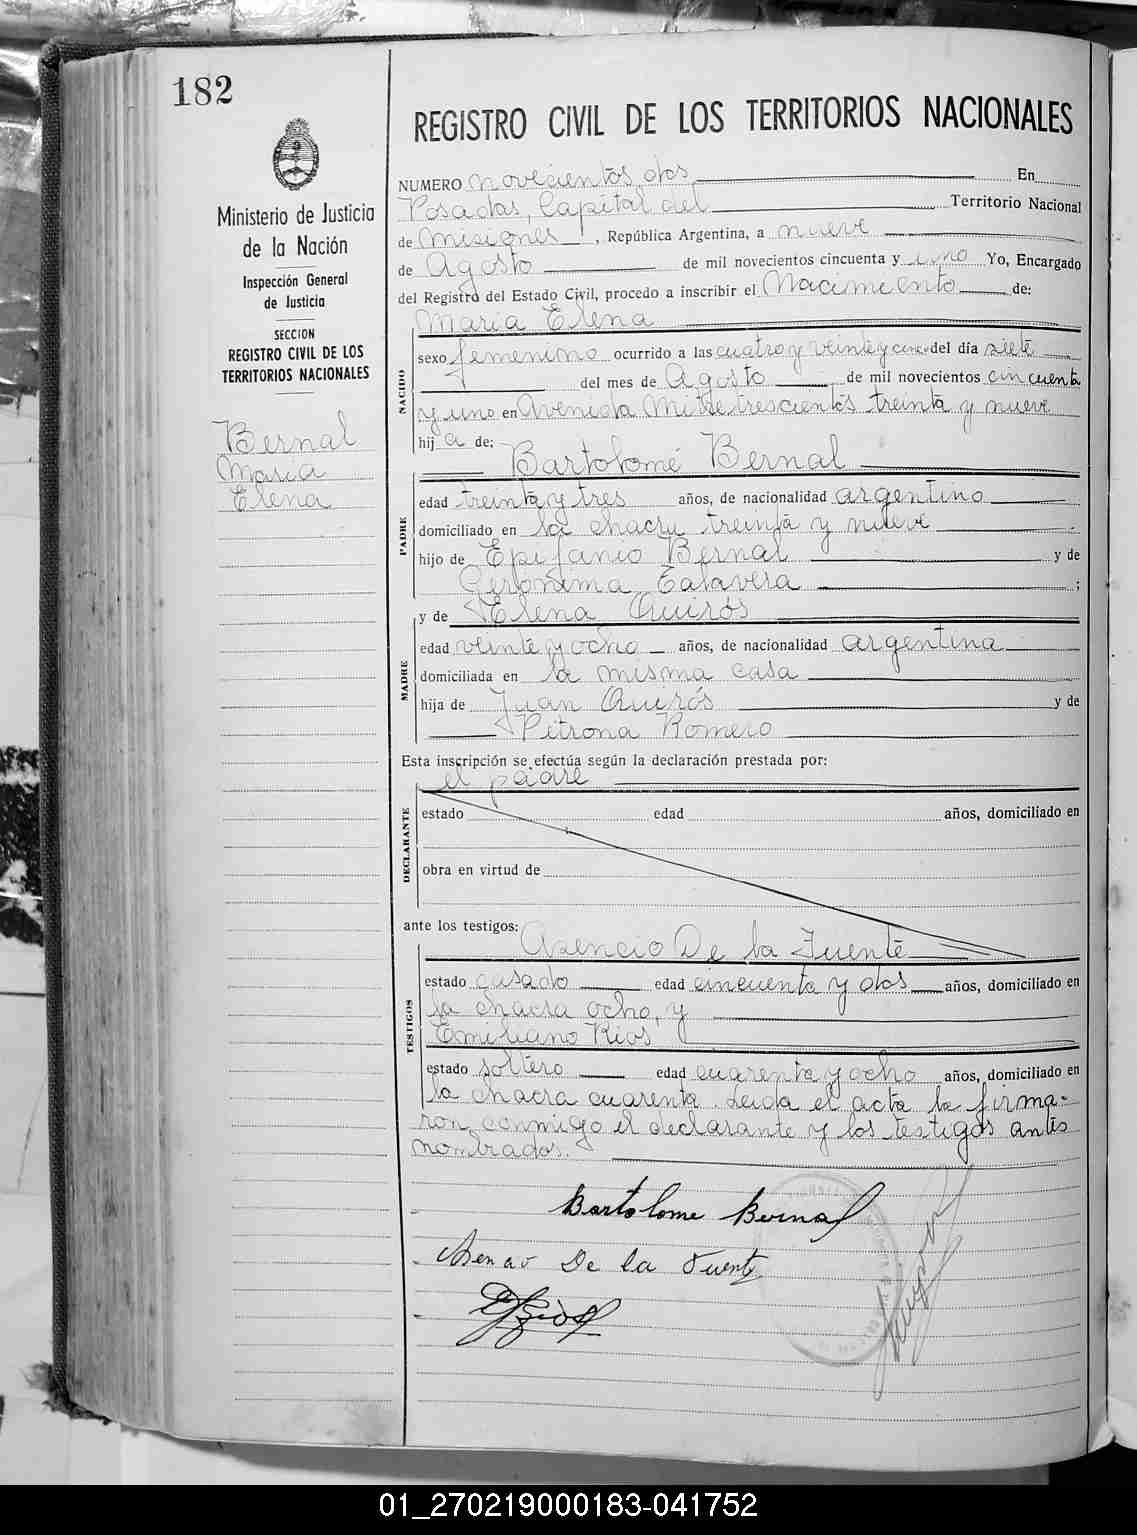 182
Ministerio de Justicia
de la Nación
Inspección General
de Justicia
SECCION
REGISTRO CIVIL DE LOS
TERRITORIOS NACIONALES
Bernal
Maria
Elena
REGISTRO CIVIL DE LOS TERRITORIOS NACIONALES
NUMERO novecientos dos En
Posadas, Capital del Territorio Nacional
de Misiones, República Argentina, a nueve
de Agosto de mil novecientos cincuenta y uno Yo, Encargado
del Registro del Estado Civil, procedo a inscribir el Nacimiento de:
Maria Elena
NACIDO
sexo femenino ocurrido a las cuatro y veinte y cinco del día siete
del mes de Agosto de mil novecientos cincuenta
y uno en Avenida Mitre trescientos treinta y nueve
hij a de:
Bartolomé Bernal
PADRE
edad treinta y tres años, de nacionalidad argentino
domiciliado en la chacra treinta y nueve
hijo de Epifanio Bernal y de
Gerónima Talavera ;
y de Elena Quirós
MADRE
edad veinte y ocho años, de nacionalidad argentina
domiciliada en la misma casa
hija de Juan Quirós y de
Petrona Romero
Esta inscripción se efectúa según la declaración prestada por:
el padre
DECLARANTE
estado edad años, domiciliado en
obra en virtud de
ante los testigos:
Asencio De la Fuente
TESTIGOS
estado casado edad cincuenta y dos años, domiciliado en
la chacra ocho, y
Emiliano Rios
estado soltero edad cuarenta y ocho años, domiciliado en
la chacra cuarenta. Leida el acta la firma-
ron conmigo el declarante y los testigos antes
nombrados.
Bartolome Bernal
De la Fuente
01_270219000183-041752